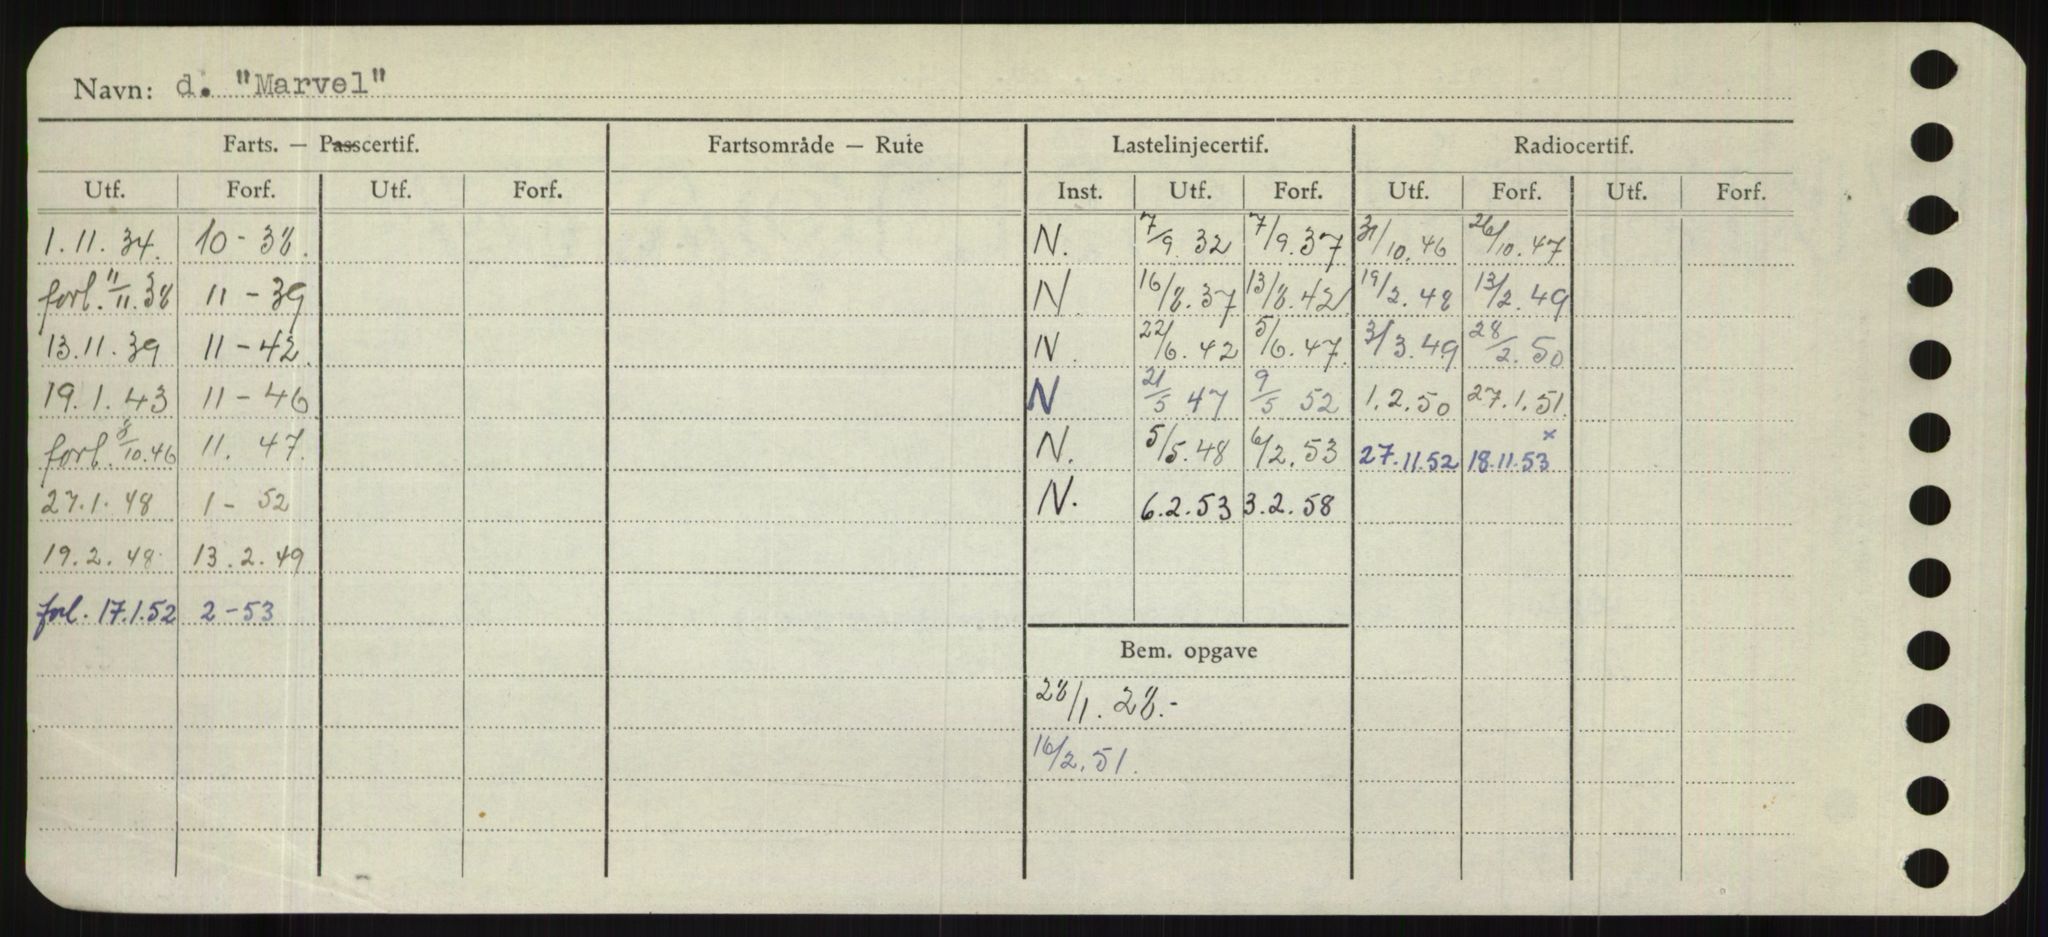 Navn: d. "Marvel"
Farts. — Passcertif. Fartsområde — Rute Lastelinjecertif. Radiocertif.
Utf. Forf. Utf. Forf. Inst. Utf. Forf. Utf. Forf. Utf. Forf.
1.11.34. 10-38. N. 7/9.32 7/9.37 31/10.46 26/10.47
forl. 11/11.38 11-39 N 16/8.37 13/8.42 19/2.48 13/2.49
13.11.39 11-42. N. 22/6.42 5/6.47 3/3.49 28/2.50
19.1.43 11-46 N 21/5 47 9/5 52 1.2.50 27.1.51.
forl. 8/10.46 11. 47. N. 5/5.48 6/2.53 27.11.52 18.11.53 x
27.1.48 1-52 N. 6.2.53 3.2.58
19.2.48 13.2.49
forl. 17.1.52 2-53
Bem. opgave
28/1.28.-
16/2.51.